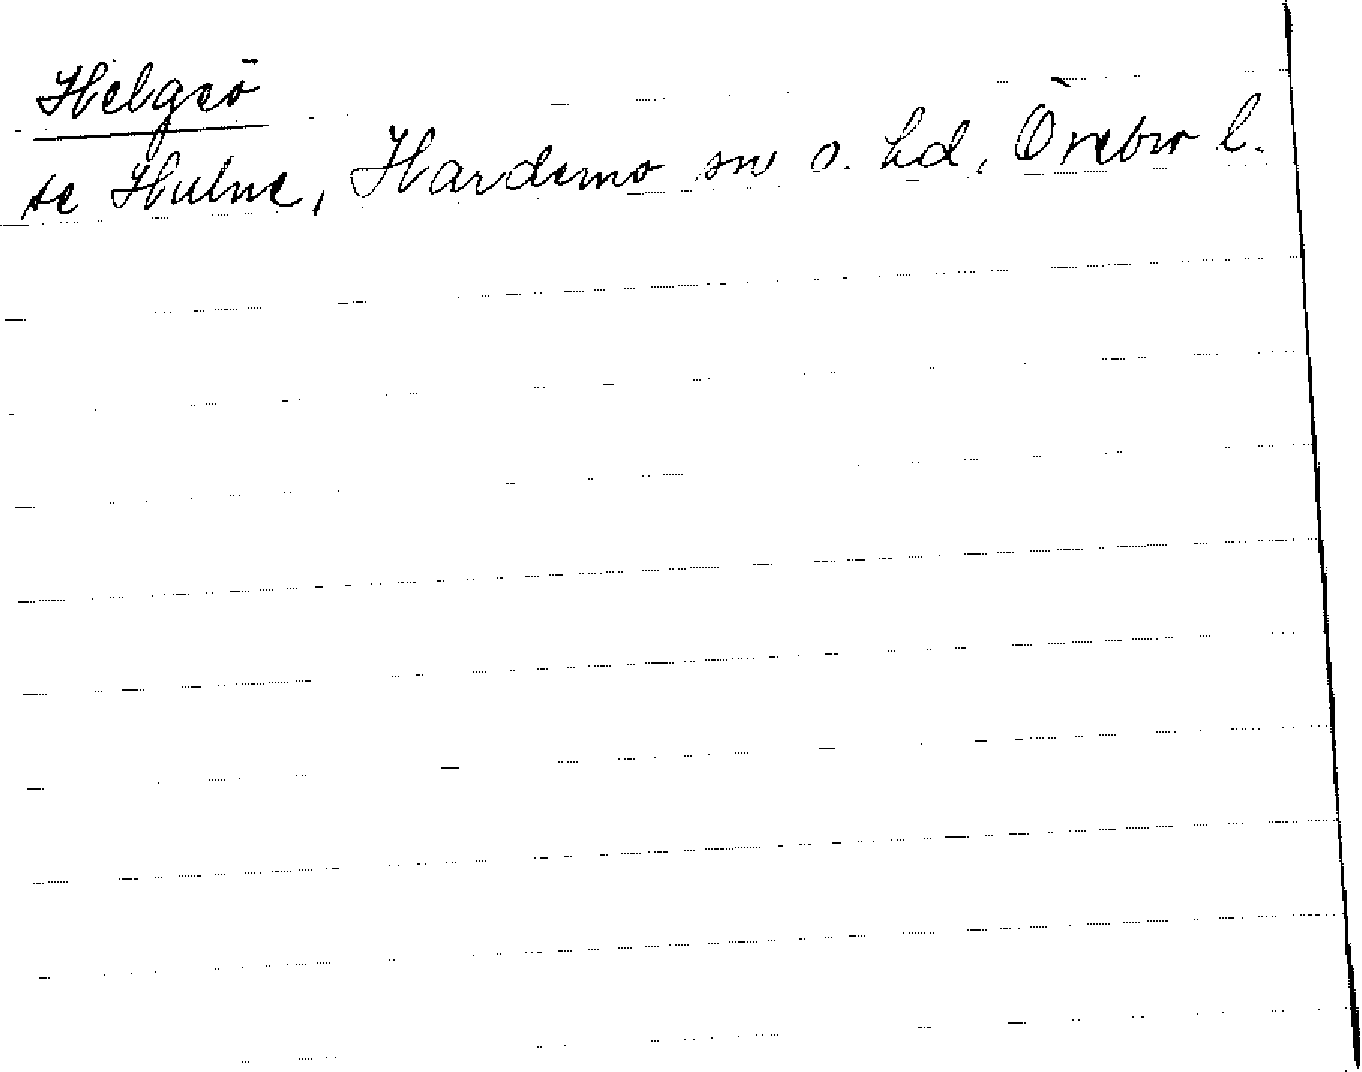 Helgeö
se Hulne, Hardemo sn o. hd, Örebro l.